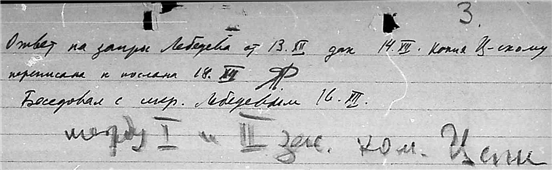 3.
Ответ на запрос Лебедева от 13.XII дан 14.XII. Копия Ц-скому
переписана и послана 18.XII
Беседовал с мир. Лебедевым 16.XII.
между I и III зас. ком.